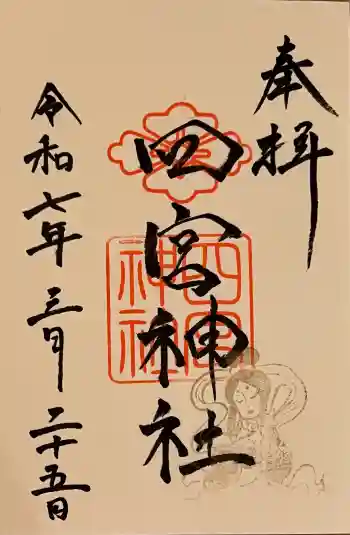 奉拝
四宮神社
四宮神社
令和七年三月二十五日